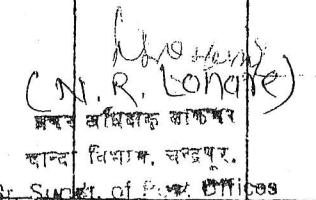 (N. R. Lohare)
प्रवर अधिक्षक डाकघर
चान्दा विभाग, चन्द्रपूर.
Sr. Supdt. of Post Offices